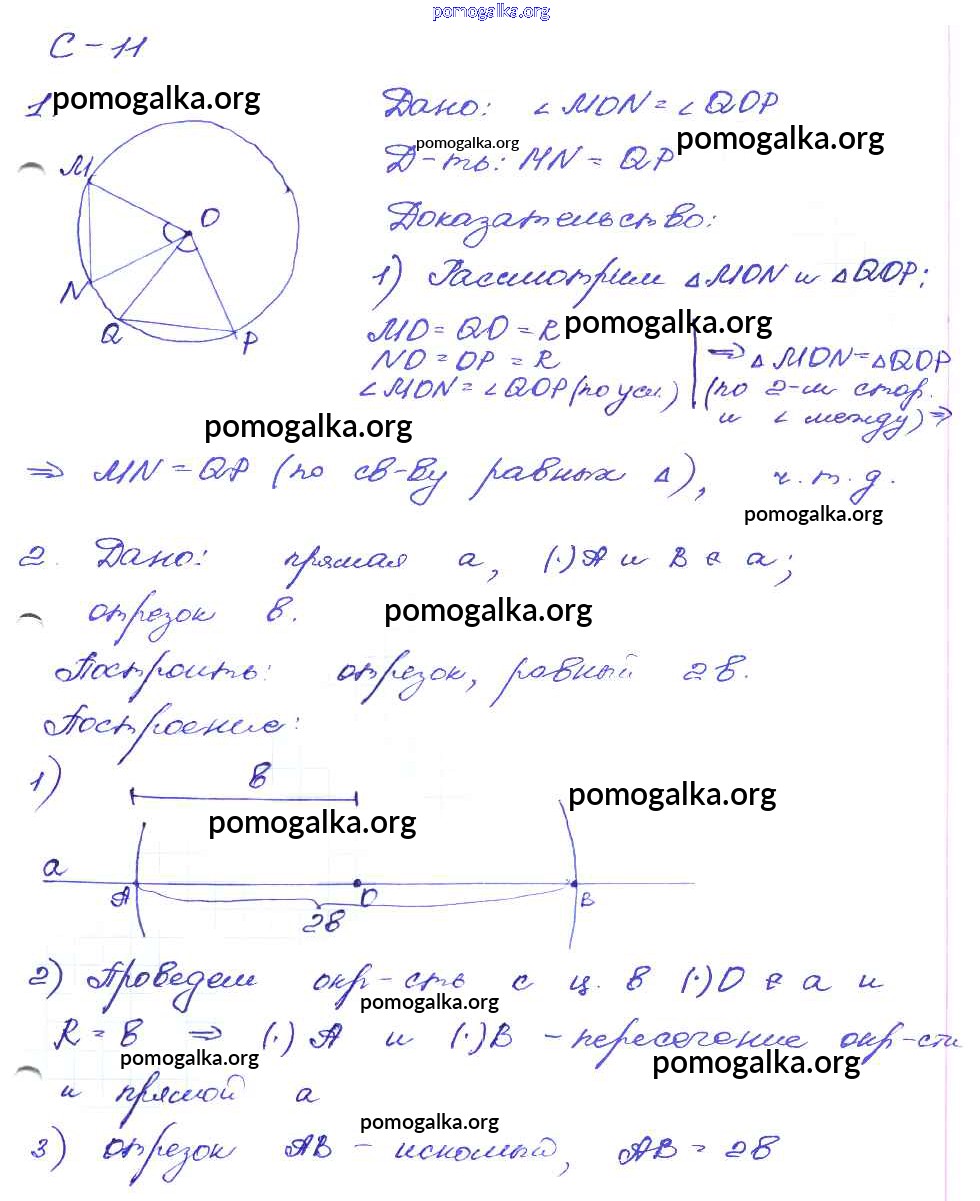 pomogalka.org
С - 11
1. pomogalka.org
Дано: ∠MON = ∠QOP
pomogalka.org
pomogalka.org
Д-ть: MN = QP
M
O
N
Q
P
Доказательство:
1) Рассмотрим △MON и △QOP:
MO = QO = R
pomogalka.org
NO = OP = R
∠MON = ∠QOP (по усл.)
⇒ △MON = △QOP
(по 2-м стор.
и ∠ между) ⇒
pomogalka.org
⇒ MN = QP (по св-ву равных △), ч.т.д.
pomogalka.org
2. Дано: прямая a, (·) A и B ∈ a;
отрезок в.
pomogalka.org
Построить: отрезок, равный 2в.
Построение:
1)
в
pomogalka.org
pomogalka.org
a
A
O
B
2в
2) Проведем окр-сть с ц. в (·) O ∈ a и
pomogalka.org
R = в ⇒ (·) A и (·) B - пересечение окр-сти
pomogalka.org
pomogalka.org
и прямой a
pomogalka.org
3) отрезок AB - искомый, AB = 2в